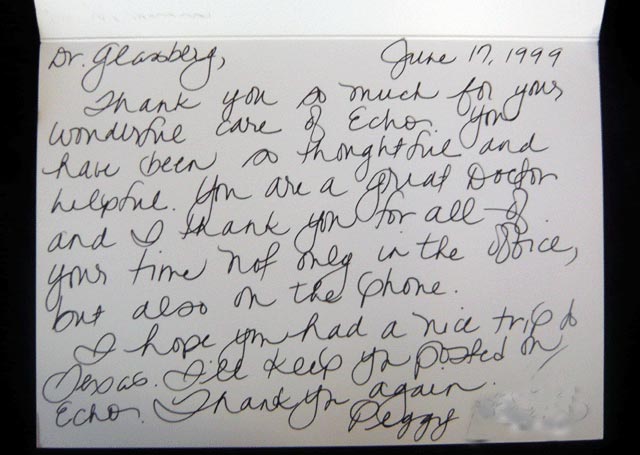 Dr. Glassberg, June 17, 1999
Thank you so much for your
wonderful care of Echo. You
have been so thoughtful and
helpful. You are a great Doctor
and I thank you for all of
your time not only in the office,
but also on the phone.
I hope you had a nice trip to
Texas. I'll keep you posted on
Echo. Thank you again.
Peggy